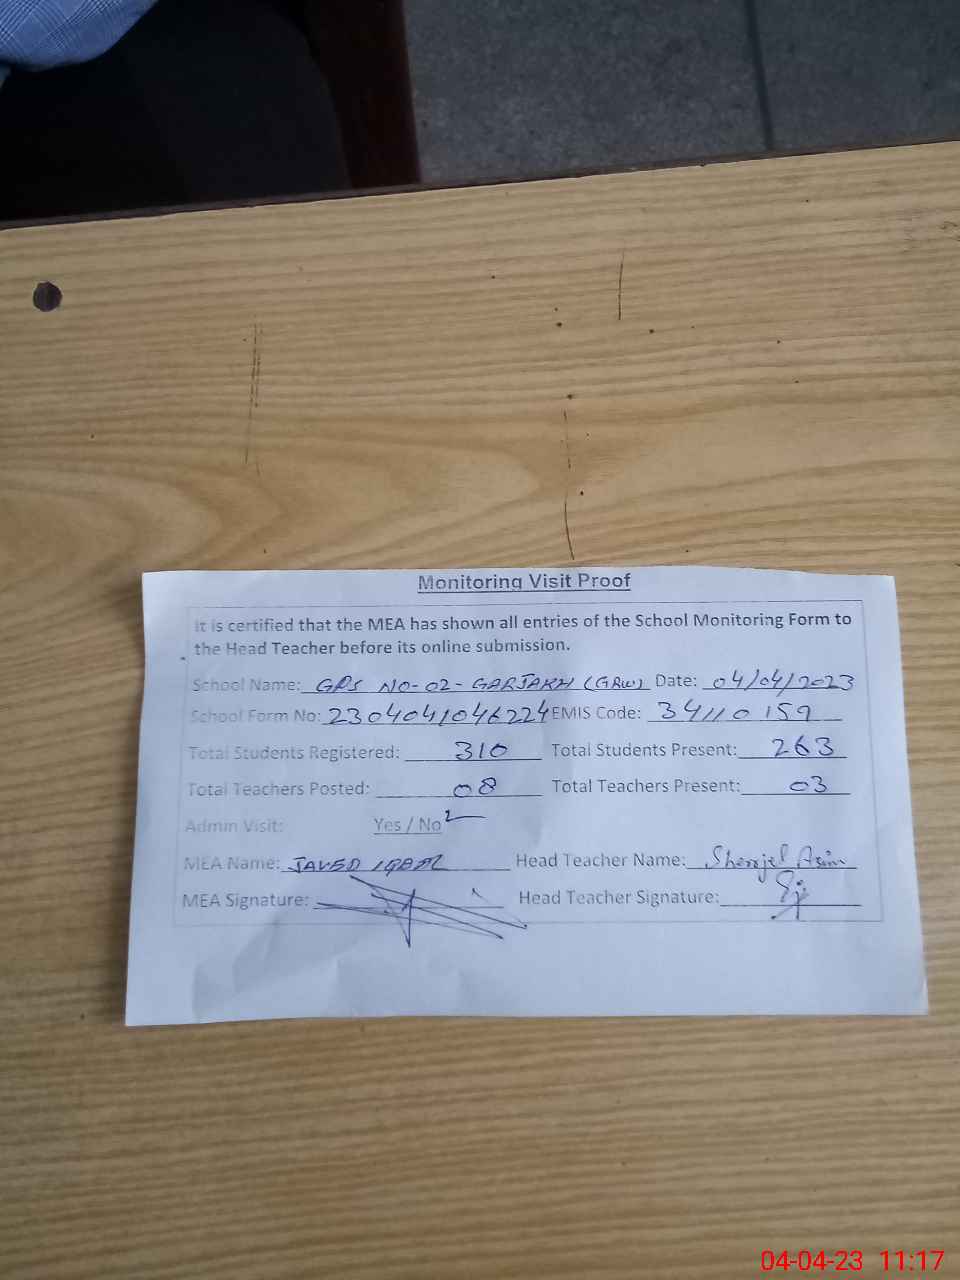 Monitoring Visit Proof
It is certified that the MEA has shown all entries of the School Monitoring Form to
the Head Teacher before its online submission.
School Name: GPS NO-02-GARJAKH (GRW) Date: 04/04/2023
School Form No: 2304041046224 EMIS Code: 34110159
Total Students Registered: 310 Total Students Present: 263
Total Teachers Posted: 08 Total Teachers Present: 03
Admin Visit: Yes / No
MEA Name: JAVED IQBAL Head Teacher Name: Asim
MEA Signature: Head Teacher Signature:
04-04-23 11:17